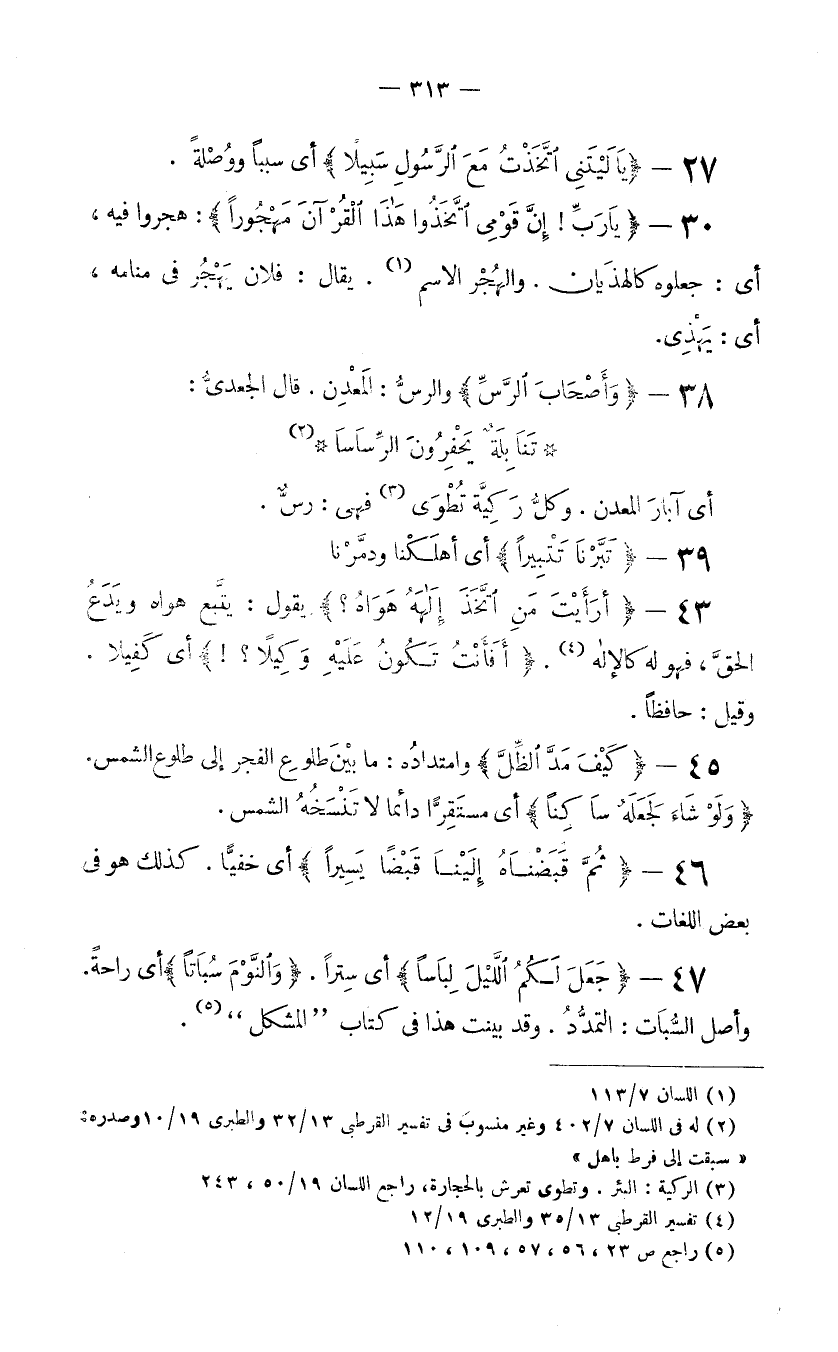 — ٣١٣ —
٢٧ — ﴿يَا لَيْتَنِى ٱتَّخَذْتُ مَعَ ٱلرَّسُولِ سَبِيلًا﴾ أى سبباً ووُصْلةً .
٣٠ — ﴿ يَارَبِّ ! إِنَّ قَوْمِى ٱتَّخَذُوا هَٰذَا ٱلْقُرْآنَ مَهْجُوراً ﴾ : هجروا فيه ،
أى : جعلوه كالهذَيان . والهُجْر الاسم (١) . يقال : فلان يَهْجُر فى منامه ،
أى : يَهْذِى.
٣٨ — ﴿ وَأَصْحَابَ ٱلرَّسِّ ﴾ والرسُّ : المَعْدِن . قال الجعدىُّ :
* تَنَابِلَةٌ يَحْفِرُونَ الرِّسَاسَا *(٢)
أى آبارَ المعدن . وكلُّ رَكِيَّة تُطْوَى (٣) فهى : رسٌّ .
٣٩ — ﴿ تَبَّرْنَا تَتْبِيراً ﴾ أى أهلـكْنا ودمَّرْنا
٤٣ — ﴿ أرَأَيْتَ مَنِ ٱتَّخَذَ إِلَٰهَهُ هَوَاهُ ؟ ﴾ يقول : يتَّبع هواه ويَدَعُ
الحقَّ ، فهو له كالإله (٤) . ﴿ أَفَأَنْتَ تَـكُونُ عَلَيْهِ وَكِيلًا ؟ ! ﴾ أى كَفِيلا .
وقيل : حافظاً .
٤٥ — ﴿ كَيْفَ مَدَّ ٱلظِّلَّ ﴾ وامتدادُه : ما بيْنَ طلوع الفجر إلى طلوع الشمس.
﴿ وَلَوْ شَاءَ لَجَعَلَهُ سَاكِناً ﴾ أى مستَقِرًّا دائما لا تَنْسَخُهُ الشمس .
٤٦ — ﴿ ثُمَّ قَبَضْنـَاهُ إِلَيْنـَا قَبْضًا يَسِيراً ﴾ أى خفيًّا . كذلك هو فى
بعض اللغات .
٤٧ — ﴿ جَعَلَ لَـكُمُ ٱلَّليْلَ لِبَاساً ﴾ أى سِتراً . ﴿ وَٱلنَّوْمَ سُبَاتاً ﴾ أى راحةً.
وأصل السُّبَات : التمدُّدُ . وقد بينت هذا فى كتاب ”المشكل“ (٥) .
(١) اللسان ١١٣/٧
(٢) له فى اللسان ٤٠٢/٧ وغير منسوب فى تفسير القرطبى ٣٢/١٣ والطبرى ١٠/١٩ وصدره:
« سبقت إلى فرط باهل »
(٣) الركية : البئر . وتطوى تعرش بالحجارة، راجع اللسان ٥٠/١٩ ، ٢٤٣
(٤) تفسير القرطبى ٣٥/١٣ والطبرى ١٢/١٩
(٥) راجع ص ٢٣ ، ٥٦ ، ٥٧ ، ١٠٩ ، ١١٠